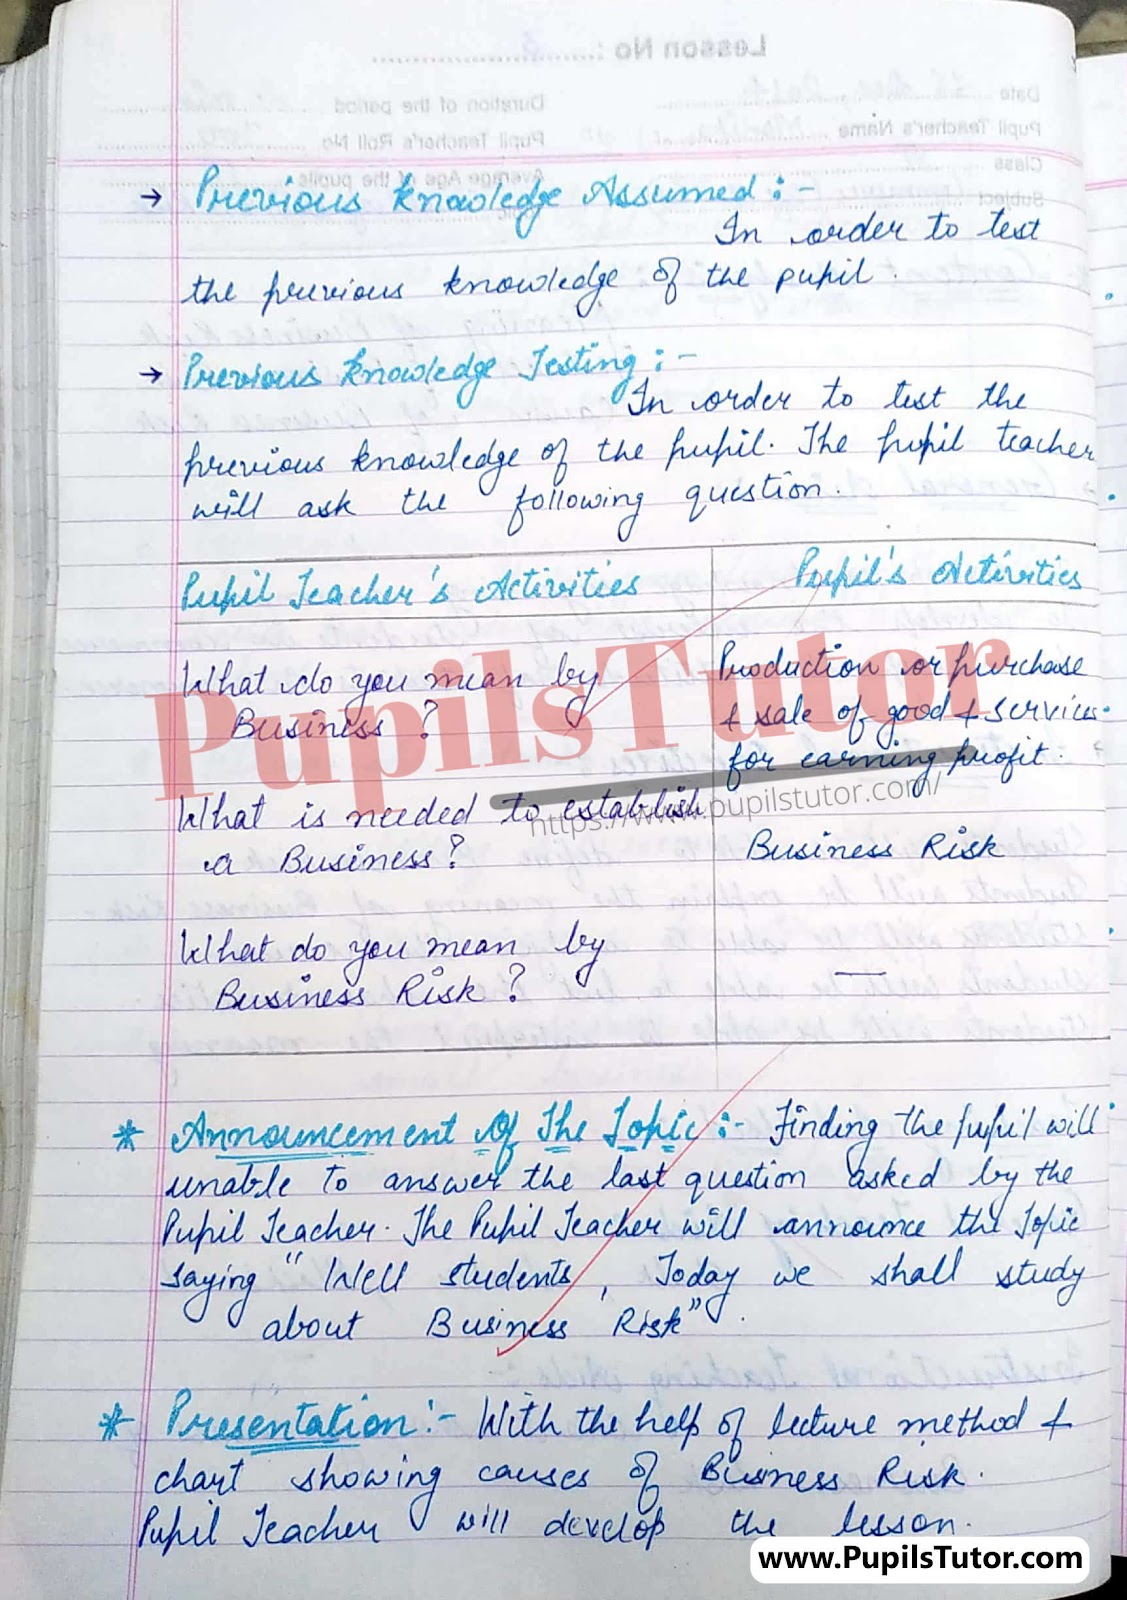 Lesson No :
Date
Duration of the period
Pupil Teacher's Name
Pupil Teacher's Roll No.
Class
Average Age of the pupils
Subject
→ Previous Knowledge Assumed :-
In order to test
the previous knowledge of the pupil.
→ Previous Knowledge Testing :-
In order to test the
previous knowledge of the pupil. The pupil teacher
will ask the following question.
Pupil Teacher's Activities
Pupil's Activities
What do you mean by
Business ?
Production or purchase
& sale of good & services.
for earning profit.
What is needed to establish
a Business ?
Business Risk
What do you mean by
Business Risk ?
—
PupilsTutor
https://www.pupilstutor.com/
* Announcement Of The Topic :- Finding the pupil will
unable to answer the last question asked by the
Pupil Teacher. The Pupil Teacher will announce the Topic
saying " Well students, Today we shall study
about Business Risk".
* Presentation :- With the help of lecture method &
chart showing causes of Business Risk.
Pupil Teacher will develop the lesson.
www.PupilsTutor.com